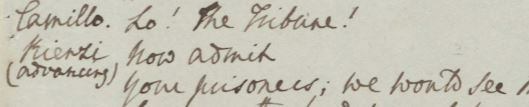 Camillo. Lo! The Tribune!
Rienzi Now admit
(advancing) your prisoners; we would see